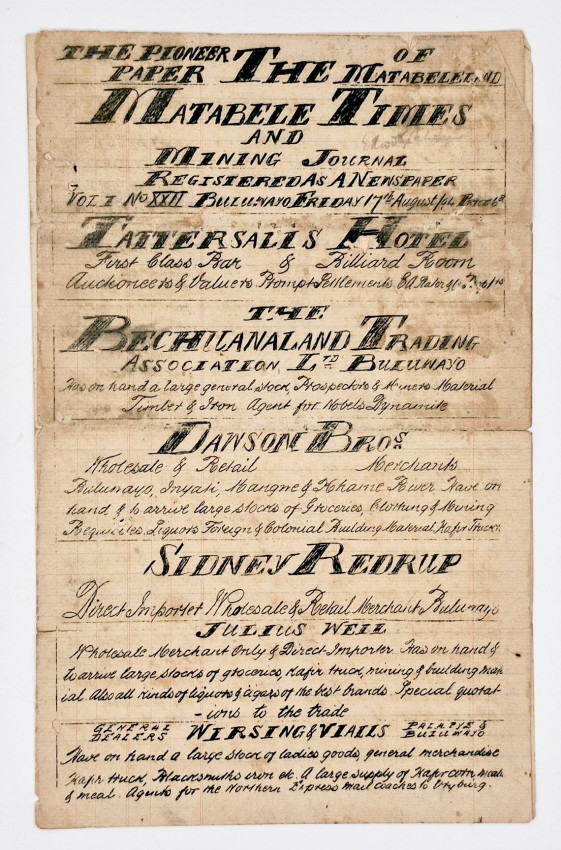 THE PIONEER PAPER THE OF MATABELELAND
MATABELE TIMES
AND
MINING JOURNAL
REGISTERED AS A NEWSPAPER
VOL I No XXII BULUWAYO FRIDAY 17th August 1894 Price 6d
TATTERSALLS HOTEL
First Class Bar & Billiard Room
Auctioneers & Valuers Prompt Settlements
THE
BECHUANALAND TRADING
ASSOCIATION, LTD BULUWAYO
Has on hand a large general stock, Prospectors & Miners Material
Timber & Iron Agent for Nobels Dynamite
DAWSON BROS.
Wholesale & Retail Merchants
Buluwayo, Inyati, Mangwe & Khame River Have on
hand & to arrive large stocks of Groceries, Clothing & Mining
Requisites. Liquors Foreign & Colonial Building Material, Kafir Truck.
SIDNEY REDRUP
Direct Importer Wholesale & Retail Merchant Buluwayo
JULIUS WEIL
Wholesale Merchant Only & Direct Importer. Has on hand &
to arrive large stocks of groceries, kafir truck, mining & building mater
ial. Also all kinds of liquors & cigars of the best brands. Special quotat
-ions to the trade
GENERAL DEALERS WIRSING & VIALLS PALAPYE & BULUWAYO
Have on hand a large stock of ladies goods, general merchandise
Kafir truck, Blacksmiths iron etc. A large supply of Kafir corn meal
& meal. Agents for the Northern Express mail coaches to Vryburg.